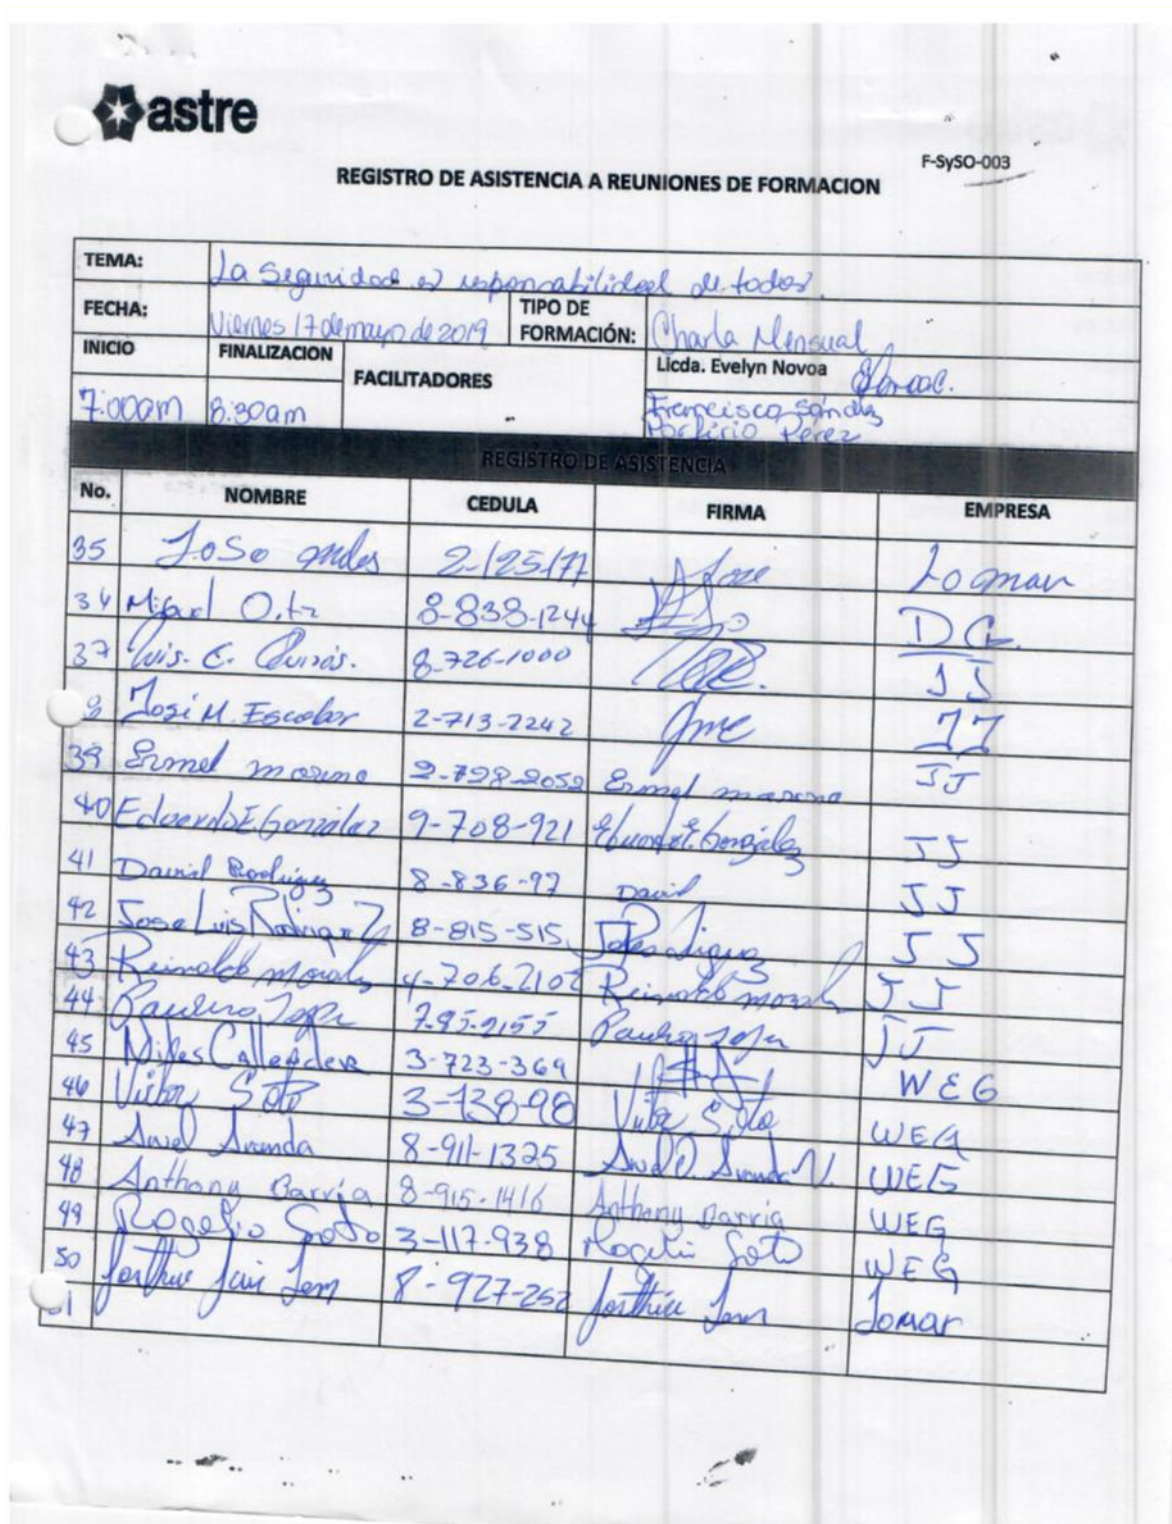 astre
F-SySO-003
REGISTRO DE ASISTENCIA A REUNIONES DE FORMACION
TEMA: La Seguridad es responsabilidad de todos.
FECHA: Viernes 17 de mayo de 2019 TIPO DE FORMACIÓN: Charla Mensual
INICIO FINALIZACION FACILITADORES Licda. Evelyn Novoa
7:00am 8:30am Francisco Porfirio Perez
REGISTRO DE ASISTENCIA
No. NOMBRE CEDULA FIRMA EMPRESA
35 Jose 2-125-177 Jose
Miguel 8-838-1244
37 Luis. E. 8-726-1000 JJ
8 José M. Escobar 2-713-2242 JJ
39 Ermel moreno 2-728-2052 Ermel moreno JJ
40 Eduardo E. González 9-708-921 Eduardo E. González JJ
41 David Rodriguez 8-836-97 David JJ
42 Jose Luis Rodriguez 8-815-515 JJ
43 Reinaldo morales 4-706-2102 Reinaldo morales JJ
44 7-95-2155 JJ
45 3-723-369 WEG
46 Victor Soto 3-138-98 Victor Soto WEG
47 Aranda 8-911-1325 Aranda V. WEG
48 Anthony Barria 8-915-1416 Anthony Barria WEG
49 Rogelio Soto 3-117-938 Rogelio Soto WEG
50 8-927-252 Lomar